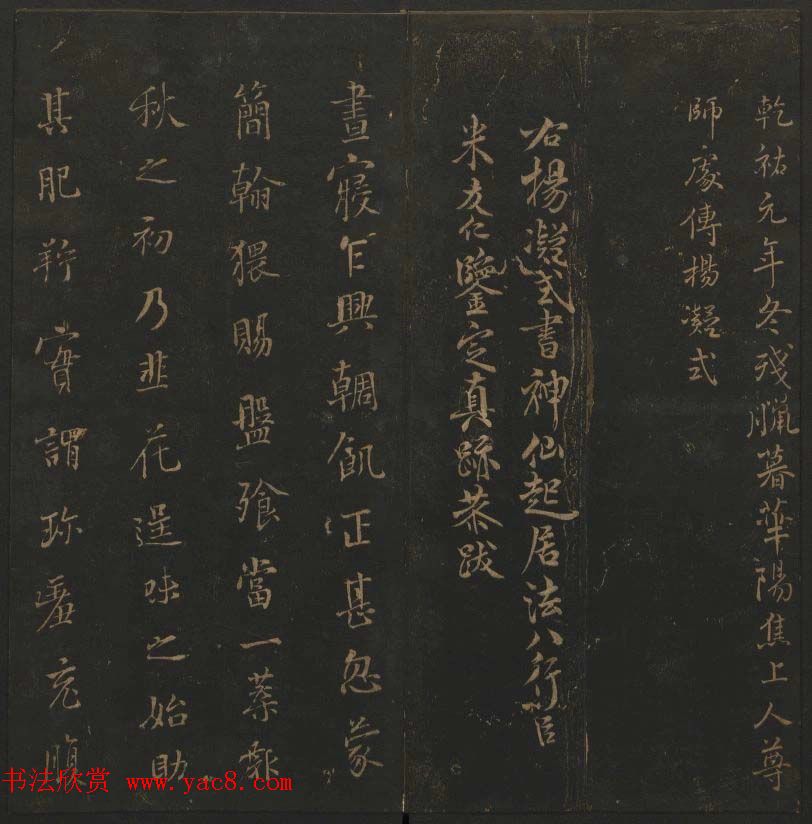 乾祐元年冬残臘暮華陽焦上人尊
師處傳楊凝式
右楊凝式書神仙起居法八行臣
米友仁鑒定真跡恭跋
晝寢乍興輖飢正甚忽蒙
簡翰猥賜盤飧當一葉報
秋之初乃韭花逞味之始助
其肥羜實謂珍羞充腹
书法欣赏 www.yac8.com